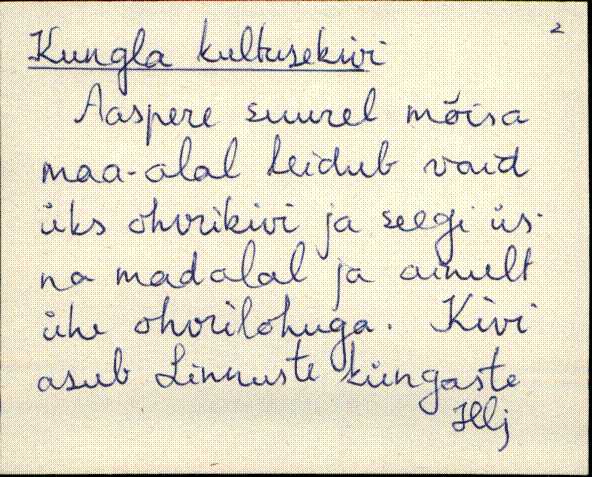 2
Kungla kultusekivi
Aaspere suurel mõisa
maa-alal leidub vaid
üks ohvrikivi ja seegi üs-
na madalal ja ainult
ühe ohvrilohuga. Kivi
asub Linnuste küngaste